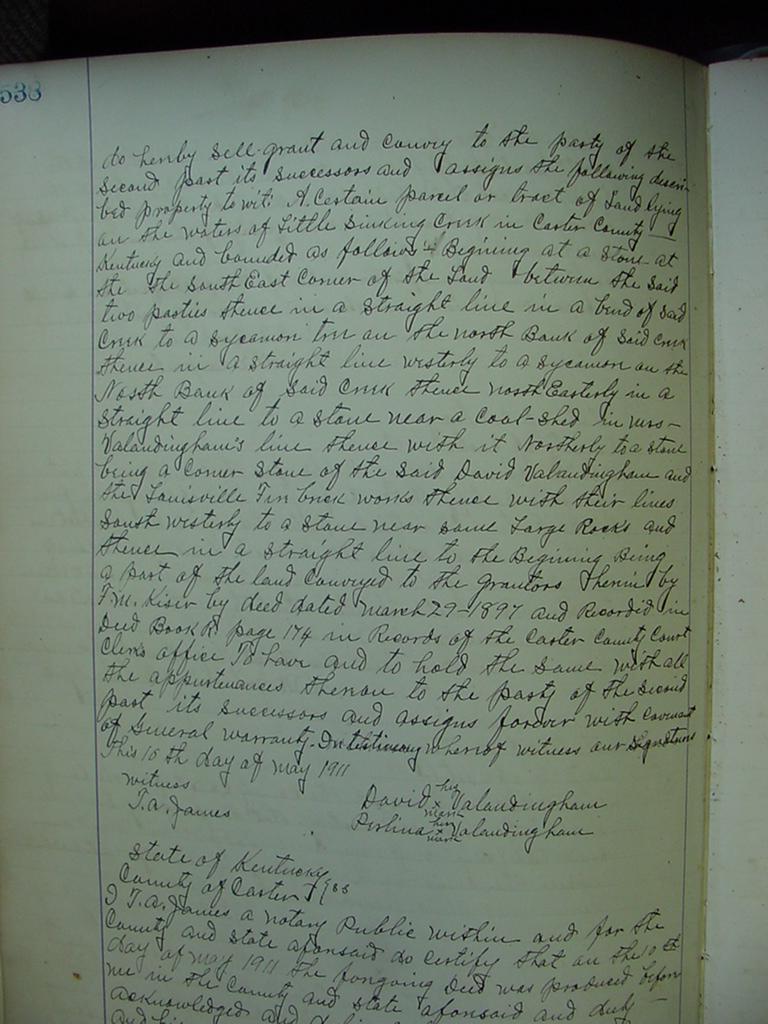 538
do hereby sell-grant and convey to the party of the
second part its successors and assigns the following descri
bed property to wit: A. Certain parcel or tract of Land lying
on the waters of Little Sinking Creek in Carter County —
Kentucky and bounded as follows:- Begining at a Stone at
the the South East Corner of the Land between the said
two parties thence in a straight line in a bend of said
Creek to a sycamore tree on the north Bank of said creek
thence in a straight line westerly to a sycamore on the
North Bank of said Creek thence north Easterly in a
straight line to a stone near a Coal-shed in mrs-
Valandingham's line thence with it Northerly to a stone
being a corner stone of the said David Valandingham and
the Louisville Fire brick works thence with their lines
South westerly to a stone near some Large Rocks and
thence in a straight line to the Begining Being
a part of the land conveyed to the grantors therein by
F.M. Kiser by deed dated March 29-1897 and Recorded in
Deed Book R. page 174 in Records of the Carter County Court
Clerks office To have and to hold the same with all
the appurtenances thereon to the party of the second
part its successors and assigns forever with covenant
of General warranty. In testimony whereof witness our signatures
This 10th day of may 1911
witness
T.A. James
David his x mark Valandingham
Perlina her x mark Valandingham
State of Kentucky
County of Carter } ss
I T.A. James a notary Public within and for the
County and State aforesaid do certify that on the 10th
day of may 1911 the foregoing Deed was produced before
me in the County and State aforesaid and duly —
acknowledged and